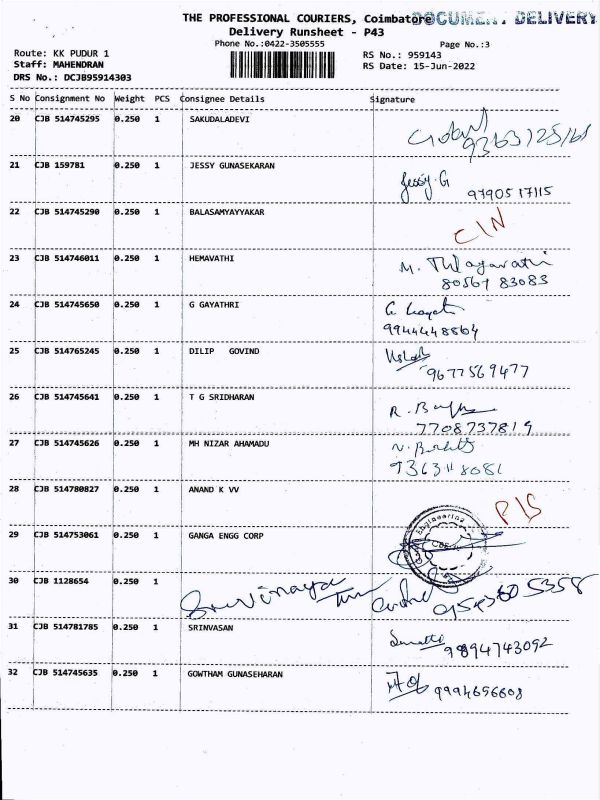 THE PROFESSIONAL COURIERS, Coimbatore DOCUMENT DELIVERY
Delivery Runsheet - P43
Phone No.:0422-3505555 Page No.:3
Route: KK PUDUR 1 RS No.: 959143
Staff: MAHENDRAN RS Date: 15-Jun-2022
DRS No.: DCJB95914303
S No Consignment No Weight PCS Consignee Details Signature
20 CJB 514745295 0.250 1 SAKUDALADEVI
21 CJB 159781 0.250 1 JESSY GUNASEKARAN Jessy.G
9790517115
22 CJB 514745290 0.250 1 BALASAMYAYYAKAR C/N
23 CJB 514746011 0.250 1 HEMAVATHI M. Thlagavathi
80567 83083
24 CJB 514745650 0.250 1 G GAYATHRI G Gayat
9944448864
25 CJB 514765245 0.250 1 DILIP GOVIND
9677569477
26 CJB 514745641 0.250 1 T G SRIDHARAN R.
7708737819
27 CJB 514745626 0.250 1 MH NIZAR AHAMADU N.
28 CJB 514780827 0.250 1 ANAND K VV P/S
29 CJB 514753061 0.250 1 GANGA ENGG CORP Engineering
30 CJB 1128654 0.250 1 Srivinaya
31 CJB 514781785 0.250 1 SRINVASAN
9894743092
32 CJB 514745635 0.250 1 GOWTHAM GUNASEHARAN
9994696608